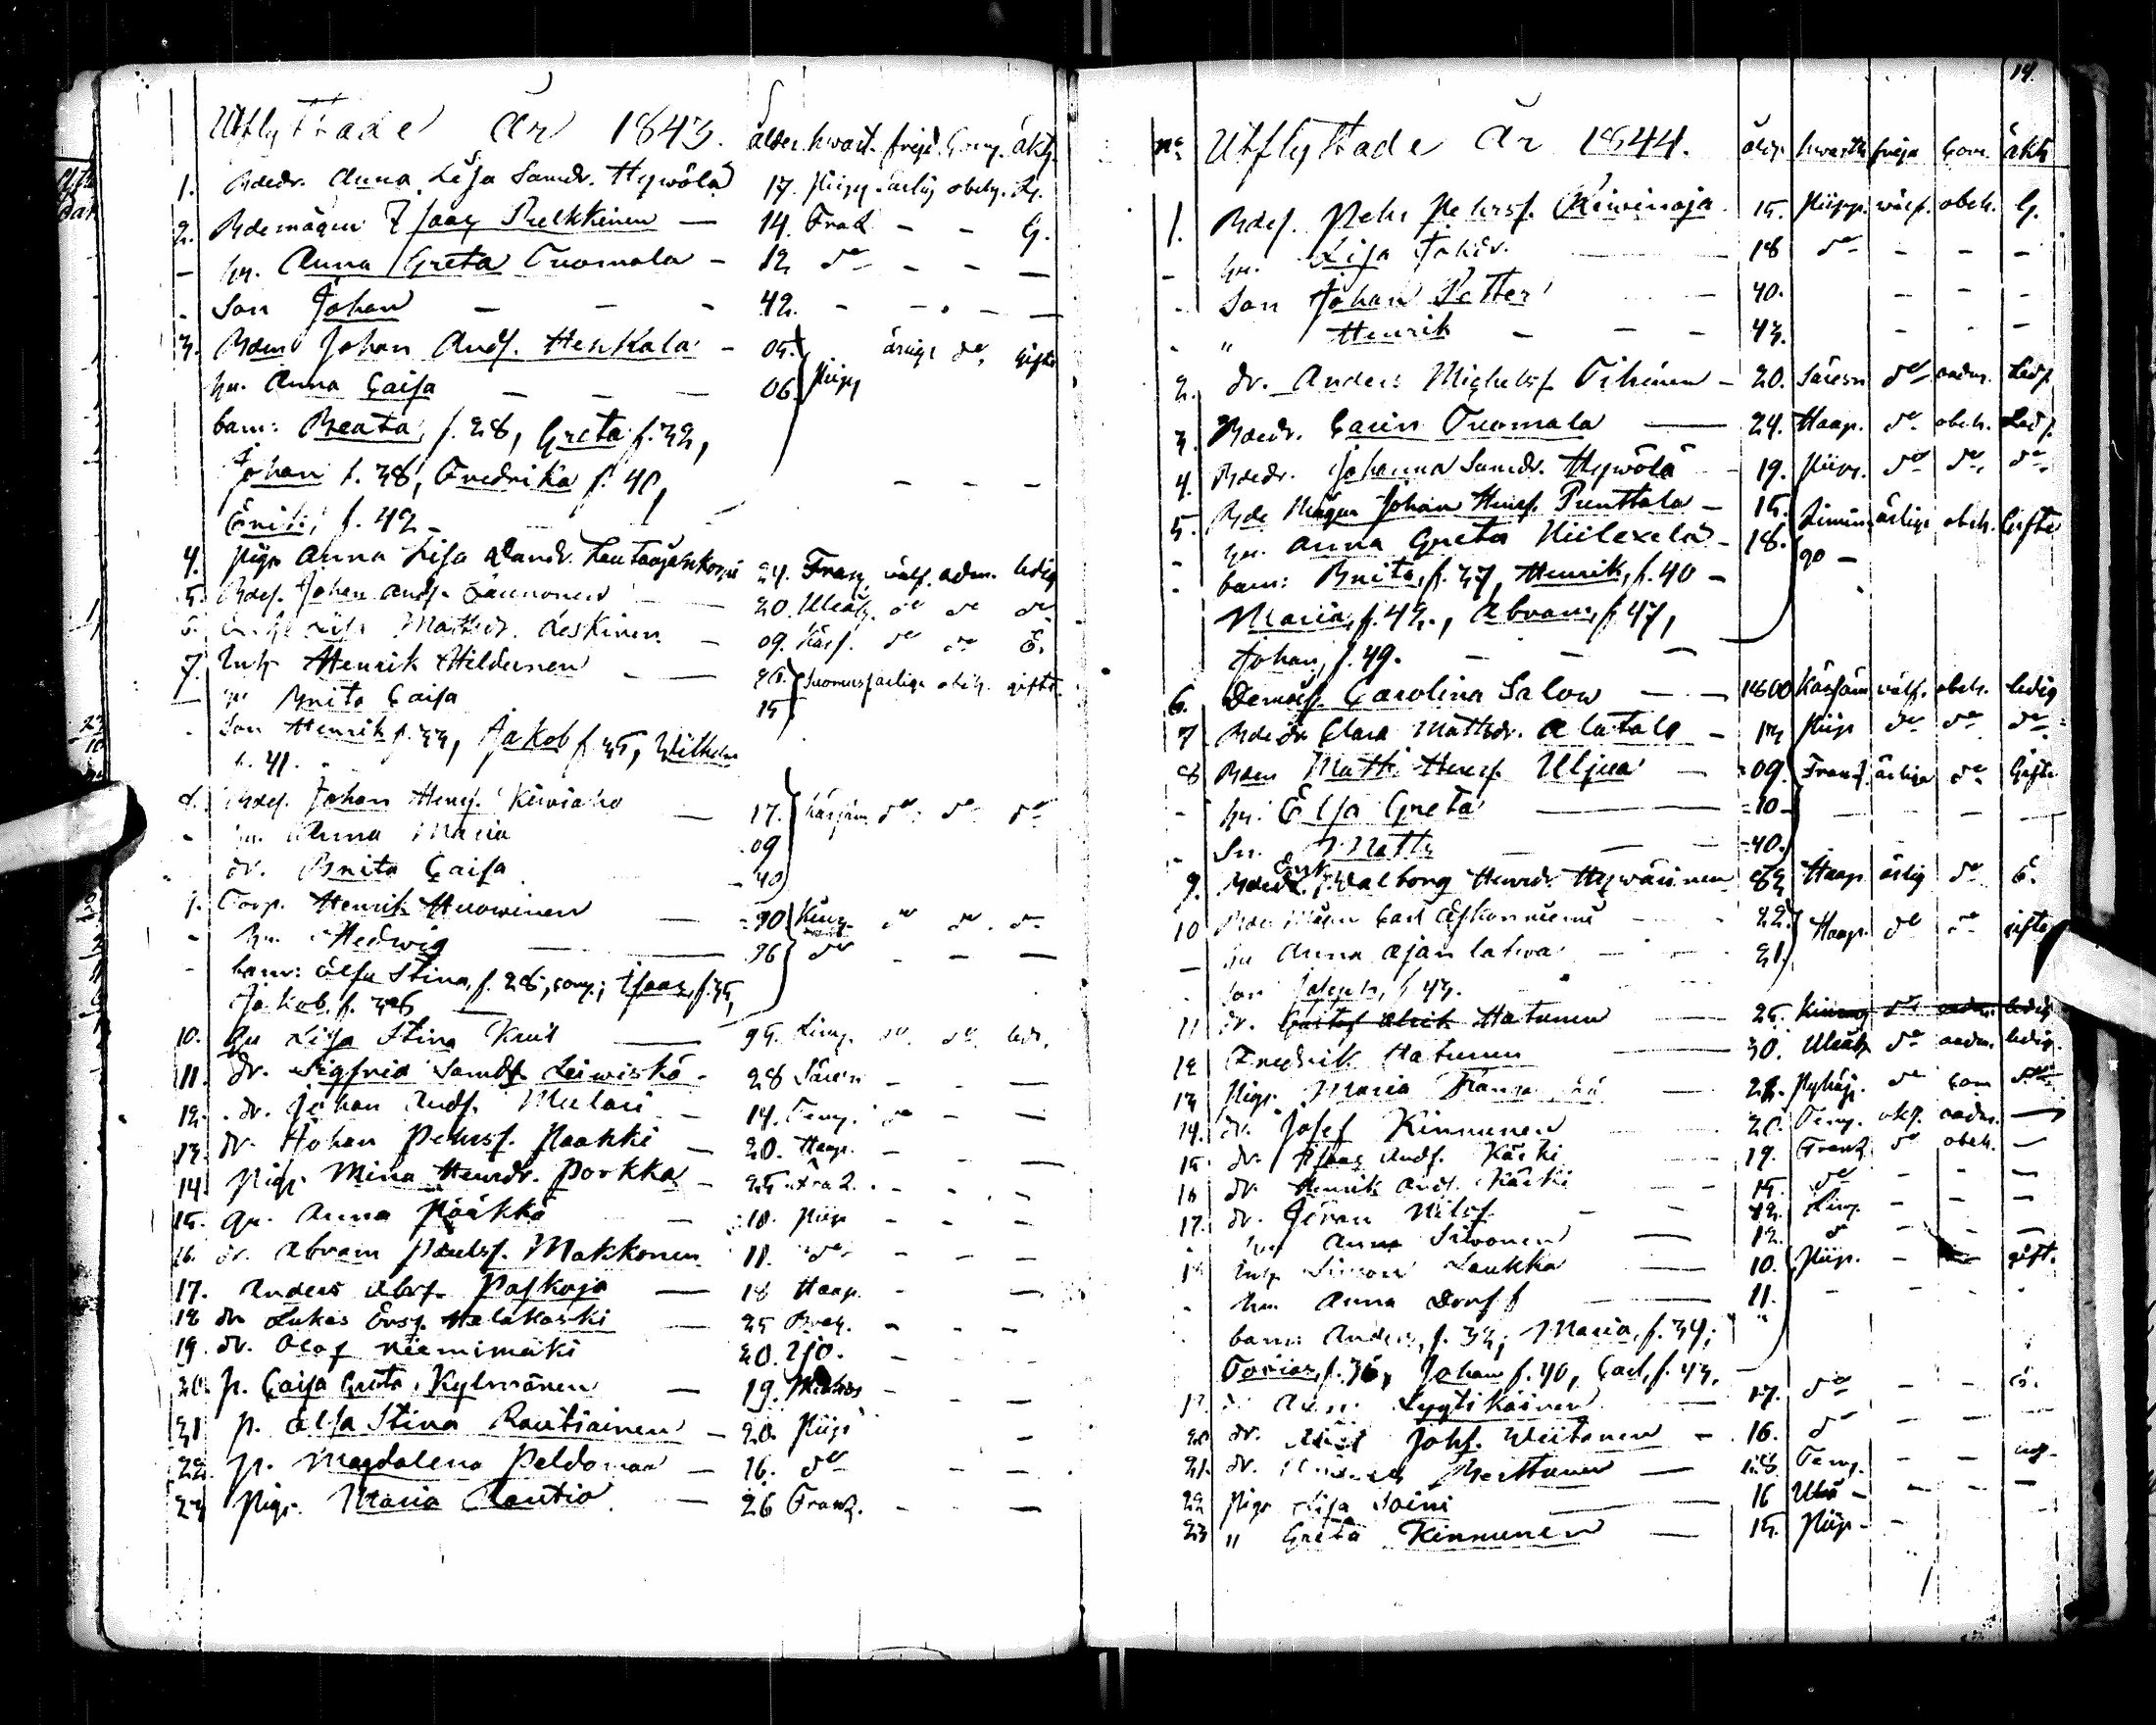 Utflyttade År 1843. ålder. hwart. frejd. Comm. äkt.
1. Bdedr. Anna Lisa Samdr. Hywölä 17. Piipp. ärlig obeh. G.
2. Bdemågen Isaac Pelkkinen — 14. Frad - - G.
— hu. Anna Greta Tuomala - 12 do - - —
- Son Johan — — - 42. - - - —
3. Bden Johan Andf. Heskala - 05. ärlige do gifte
hu. Anna Caisa — — — 06. Piipp
barn: Beata, f. 28, Greta f. 32,
Johan f. 38, Fredrika f. 40, - - -
f. 42 -
4. Piga Anna Lisa 24. Franz. välf. adm. ledig
5. Bdef. Johan Andf. 20. Uleåb. do do do
6. Mattsdr. Leskinen — 09. Kärs. do do E.
7. Inh. Henrik Hildunen — Suomus ärlige obeh. gifte
— hu Brita Caisa 15
- Son Henrik f. 33, Jakob f. 35, Wilhelm
f. 41.
8. Bdef. Johan Henrf. Kiwiaho — 17. Kärsäm do do do
- hu. Anna Maria 09
dr. Brita Caisa - 40
9. Torp. Henrik Huowinen — - 90 do do do
- hu. Hedwig — 96 do - - —
- barn: Elsa Stina, f. 28, com.; Isaac, f. 35,
Jakob. f. 36
10. Lisa Stina 95. Lim. do do led.
11. dr. Sigfrid Samdf. Leiwiskä - 28 Säresn - - —
12. dr. Johan Andf. Mulari - 14. Temj. do - —
13. dr. Johan Pehrsf. Paakki — 20. Haap. - - —
14. Piga Mina Henrdr. Porkka - 25. Franz. - - -
15. qv. Anna Pöökkö — 10. Piip - - —
16. dr. Abram Paulsf. Makkonen 11. do - - —
17. Anders Abrf. Paskoja — 18 Haap. - —
18 dr Lukas Ersf. Halakoski — 25 Brah. - - -
19. dr. Olof Niemimäki 20. Ijo. - - —
20. p. Caisa Greta Kylmänen — 19. - - —
21 p. Elsa Stina Rautiainen — 20. Piip —
22. p. Magdalena Peldomaa — 16. do - —
23 Piga Maria Rautio — 26 Franz. - - —
14.
No Utflyttade År 1844. åld. hwarth frejd Com. äkt
1. Bdef. Pehr Pehrsf. Kiwinoja 15. Piipp. välf. obeh. G.
- hu. Lisa Johdr. — 18 do - - -
- Son Johan Petter — 40. - - -
- " Henrik - - - 43. - - -
2. dr. Anders Michelsf. Tihinen - 20. Säresn do oadm. Led.
3. Bdedr. Carin Tuomala — 24. Haap. do obeh. Led.
4. Bdedr. Johanna Samdr. Hywölä - 19. Piip. do do do
5. Bde Mågen Johan Henrf. Punttala — 15. Limin ärlige obeh. Gifte
- hu. Anna Greta Hiilexelä - 18.
- barn: Brita, f. 37, Henrik, f. 40 -
Maria, f. 42., Abram, f. 47,
Johan, f. 49. - - -
6. Demois. Carolina Salow — - 1800 Kärsäm välf. obeh. ledig
7 Bdedr Clara Mattsdr. Alatalo - 13 Piip do do do
8 Bden Matts Henrf. Uljua — 09. Franz. ärlige do Gifte
- hu. Elsa Greta — - 10 - — — —
- Sn. Matts — — — - 40.
9. Enk. Walborg Henrdr Hywärinen 83 Haap ärlig do E.
10 Bde Mågen Carl 22. Haap. do do gifte
— hu Anna Ajanlatwa — - 21.
- Son Joseph, f 43.
11 dr. Gustaf Ulrik Hatunen — 25. do oadm. ledig
12 Fredrik Hatunen — 30. Uleåb do oadm. ledig.
13 Piga Maria — 22. Pyhäj. do Com do
14. dr. Josef Kinnunen 20. Temj. oadm. —
15 dr. Isaac Andf. Kärki — 19. Franz. do obeh. —
16 dr. Henrik Andf. Kärki — - 15. do - - —
17. dr. Göran Nilsf. - - 12. Lim. - - —
Anna Siwonen — 12. do - - —
18 Inh. Simon Laukka — 10. Piip. - — gift.
- hu Anna Dروff — 11. - - -
- barn: Anders, f. 32; Maria, f. 34;
Tobias, f. 36, Johan f. 40, Carl, f. 43.
Lyytikäinen — 17. do - - E.
20 dr. Johf. Wiitanen - 16. do - - —
21. dr. Perttunen — 18. Temj. - -
22 Piga Lisa Soini — 16 Uleå - - - —
23 " Greta Kinnunen — 15. Piip - -